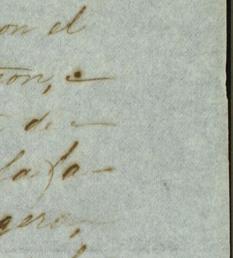 on el
ion, é
de
la fa-
gero,